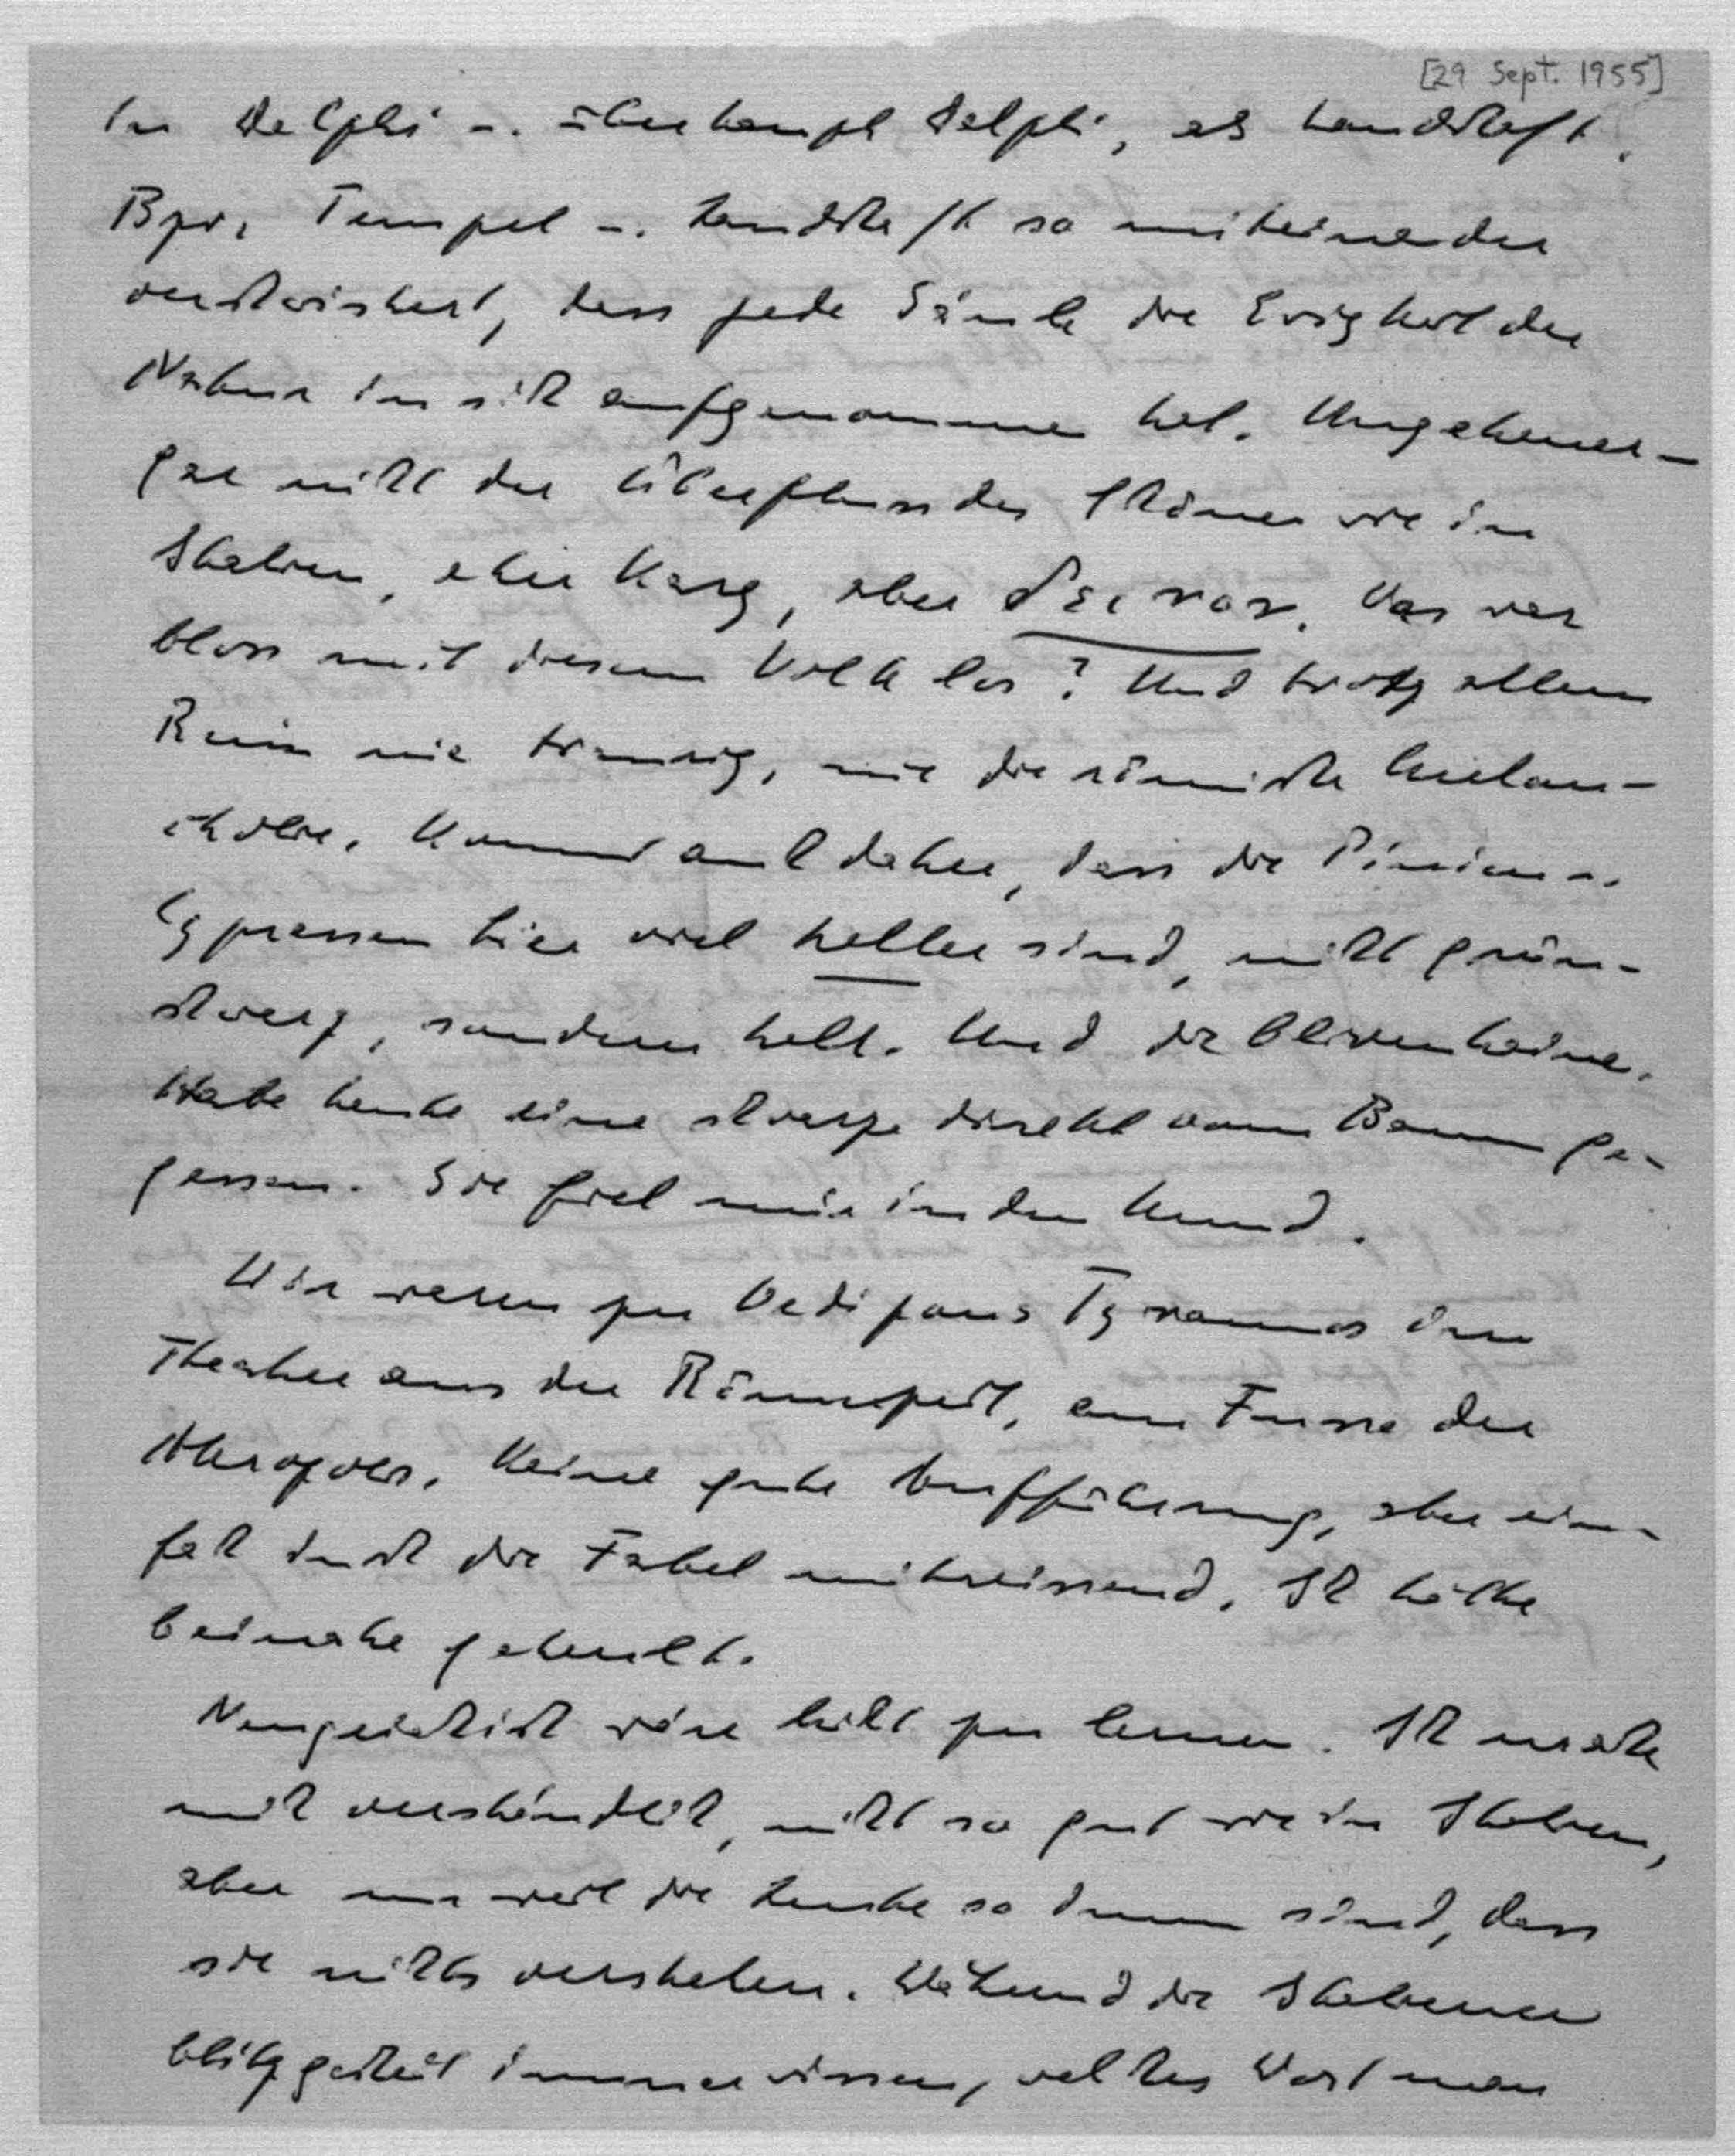 [29 Sept. 1955]
In Delphi u. überhaupt Delphi, als Landschaft.
Bzw. Tempel u. Landschaft so miteinander
verschwistert, dass jede Säule die Ewigkeit der
Natur in sich aufgenommen hat. Ungeheuer –
gar nicht der Überfluss des Schönen wie in
Italien, eher karg, aber δεινον. Was war
bloss mit diesem Volk los? Und trotz allem
Ruin nie traurig, nie die römische Melan-
cholie. Kommt auch daher, dass die Pinien u.
Cypressen hier viel heller sind, nicht grün-
schwarz, sondern hell. Und die Olivenhaine.
Habe heute eine schwarze direkt vom Baum ge-
gessen. Sie fiel mir in den Mund.
Wir waren zu Oedipous Tyrannos im
Theater aus der Römerzeit, am Fusse der
Akropolis. Keine gute Aufführung, aber ein-
fach durch die Fabel mitreissend. Ich hätte
beinahe geheult.
Neugriechisch wäre leicht zu lernen. Ich mache
mich verständlich, nicht so gut wie in Italien,
aber nur weil die Leute so dumm sind, dass
sie nichts verstehen. Während die Italiener
blitzgescheit immer wissen, welches Wort man